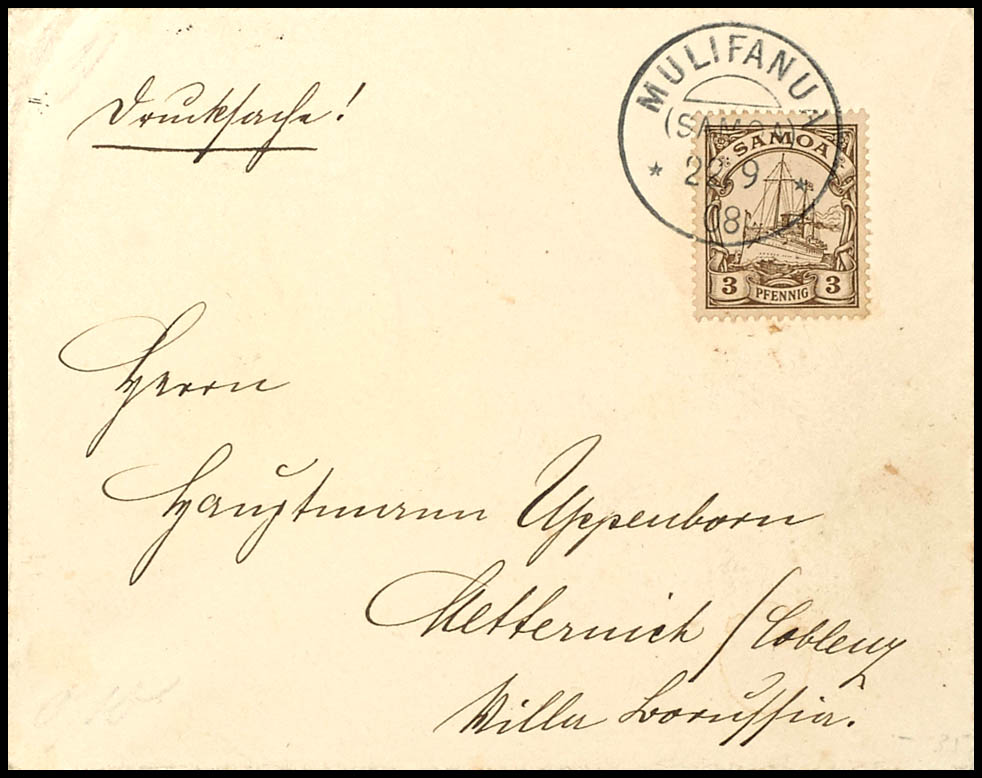 Drucksache!
MULIFANUA
(SAMOA)
* 22 9 *
08
SAMOA
3 PFENNIG 3
Herrn
Hauptmann Uppenborn
Metternich / Coblenz
Villa Borussia.